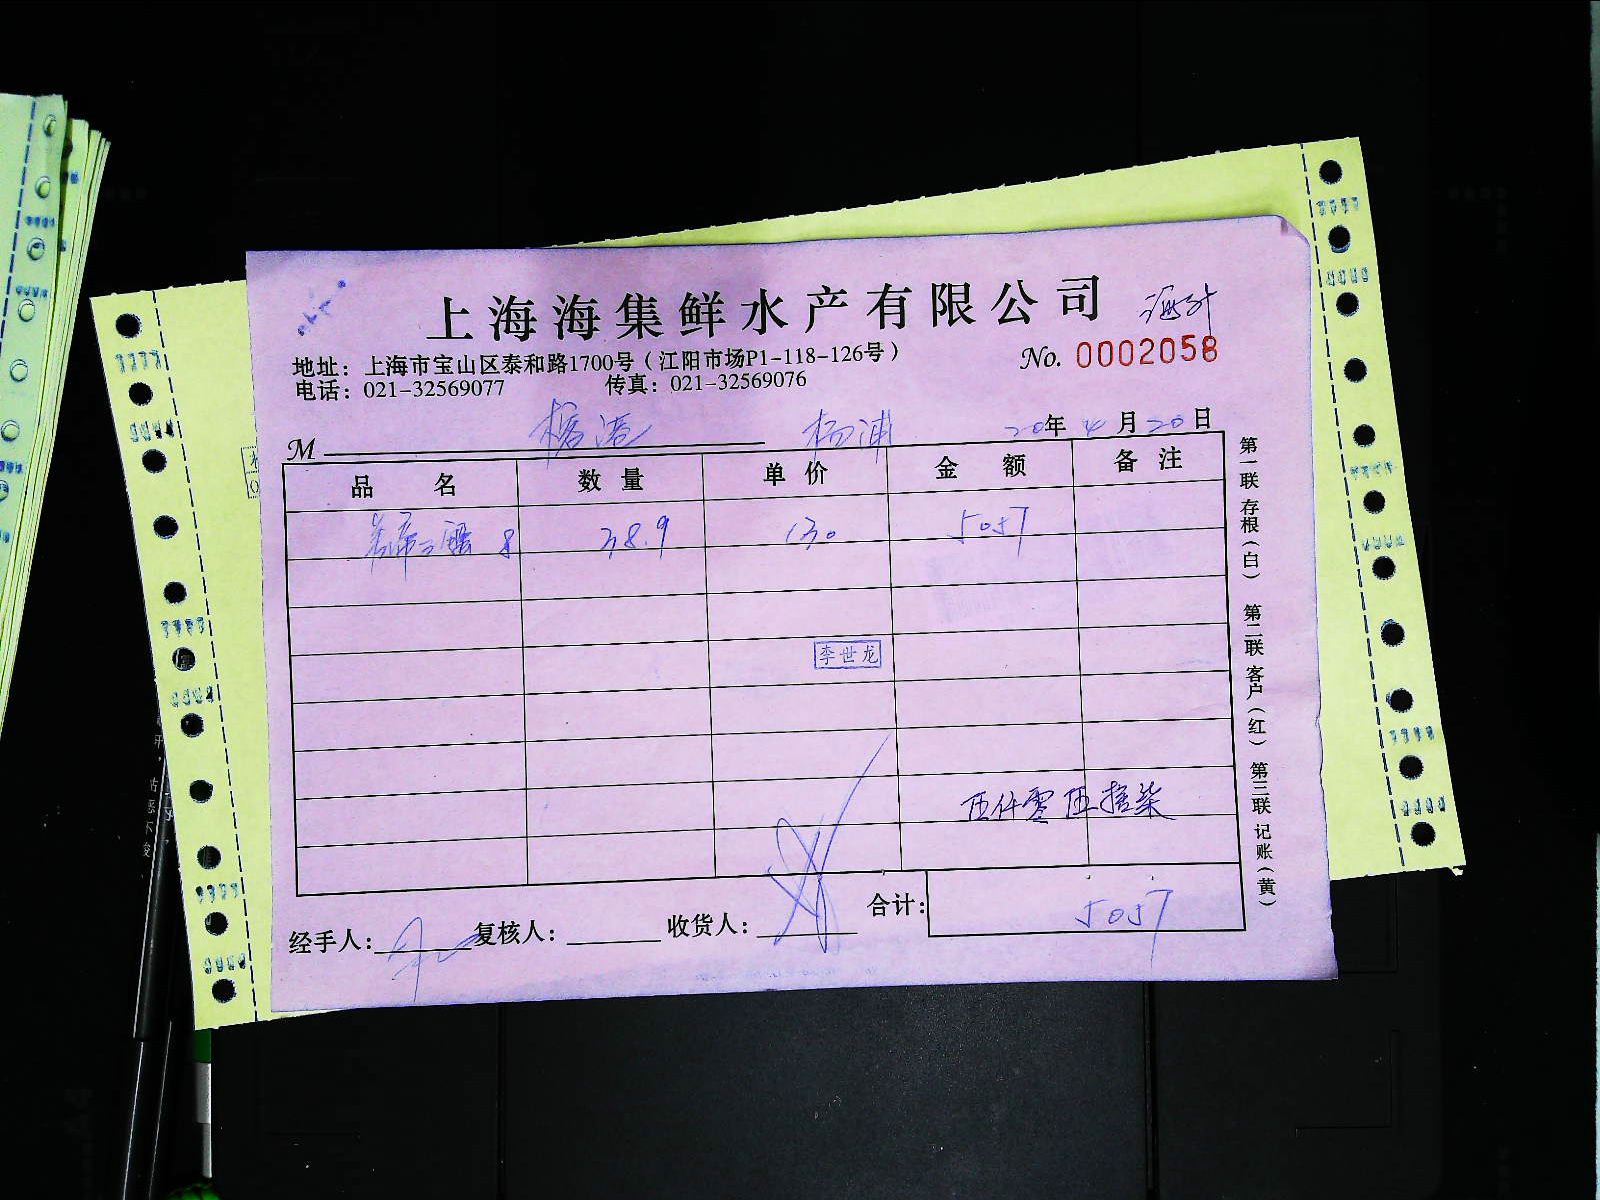 上海海集鲜水产有限公司
地址：上海市宝山区泰和路1700号（江阳市场P1-118-126号）
No. 0002058
电话：021-32569077 传真：021-32569076
M 杨浦 20年 4月 20日
品名 数量 单价 金额 备注
38.9 130 5057
李世龙
伍仟零伍拾柒
合计： 5057
经手人： 复核人： 收货人：
第一联 存根（白） 第二联 客户（红） 第三联 记账（黄）